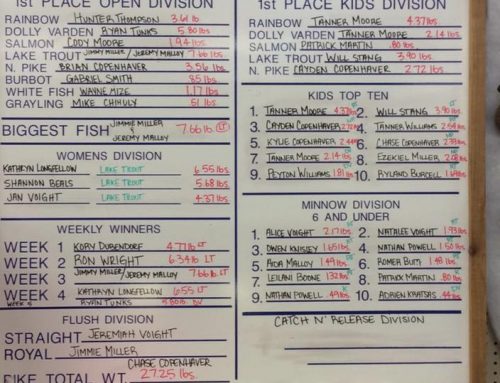 1st PLACE OPEN DIVISION
RAINBOW HUNTER THOMPSON 3.61 lb
DOLLY VARDEN RYAN TUNKS 5.80 lbs
SALMON CODY MOORE 1.94 lbs
LAKE TROUT JIMMY MILLER / JEREMY MALLOY 7.66 lbs
N. PIKE BRIAN COPENHAVER 3.56 lbs
BURBOT GABRIEL SMITH .85 lbs
WHITE FISH WAYNE MIZE 1.17 lbs
GRAYLING MIKE .51 lbs
BIGGEST FISH JIMMIE MILLER & JEREMY MALLOY 7.66 lb. LT
WOMENS DIVISION
KATHRYN LONGFELLOW LAKE TROUT 6.55 lbs
SHANNON BEALS LAKE TROUT 5.68 lbs.
JAN VOIGHT LAKE TROUT 4.37 lbs.
WEEKLY WINNERS
WEEK 1 KORY DUBENDORF 4.77 lb LT
WEEK 2 RON WRIGHT 6.34 lb LT
WEEK 3 JIMMY MILLER / JEREMY MALLOY 7.66 lb LT
WEEK 4 KATHRYN LONGFELLOW 6.55 LT
WEEK 5 RYAN TUNKS 5.80 lb. DV
FLUSH DIVISION
STRAIGHT JEREMIAH VOIGHT
ROYAL JIMMIE MILLER
CHASE COPENHAVER
PIKE TOTAL WT. 27.25 lbs.
1st PLACE KIDS DIVISION
RAINBOW TANNER MOORE 4.37 lbs.
DOLLY VARDEN TANNER MOORE 2.14 lbs
SALMON PATRICK MARTIN .80 lbs.
LAKE TROUT WILL STANG 3.90 lbs.
N. PIKE CAYDEN COPENHAVER 2.72 lbs
KIDS TOP TEN
1. TANNER MOORE 4.37 2. WILL STANG 3.90
3. CAYDEN COPENHAVER 2.72 4. TANNER WILLIAMS
5. KYLIE COPENHAVER 6. CHASE COPENHAVER
7. TANNER MOORE 2.14 lbs 8. EZEKIEL MILLER
9. PEYTON WILLIAMS 1.81 lbs 10. RYLAND BURCELL
MINNOW DIVISION
6 AND UNDER
1. ALICE VOIGHT 2.17 lbs 2. NATALEE VOIGHT 1.93 lbs
3. OWEN KNISEY 1.65 lbs 4. NATHAN POWELL 1.50 lbs
5. AIDA MALLOY 1.49 lbs 6. ROMER BUTT 1.48 lbs
7. LEILANI BOONE 1.32 lbs 8. PATRICK MARTIN .80 lbs
9. NATHAN POWELL .49 lbs 10. ADRIEN KRATSAS .44 lbs
CATCH N' RELEASE DIVISION